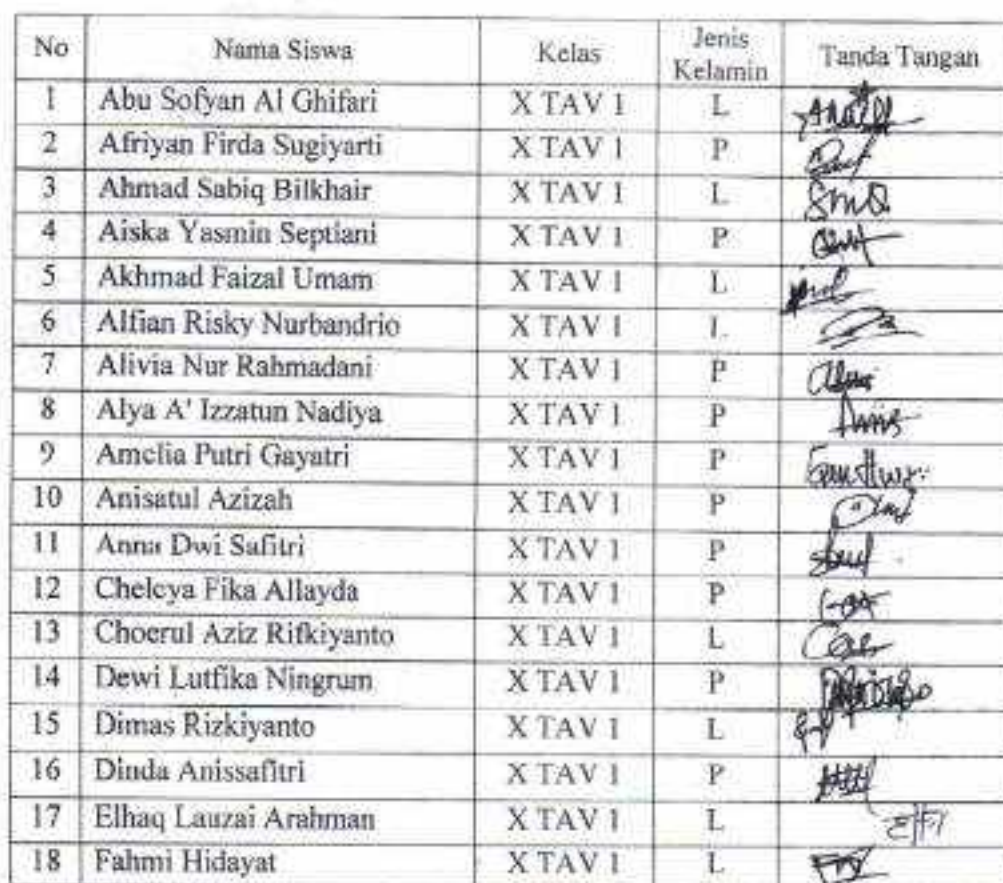 No Nama Siswa Kelas Jenis Kelamin Tanda Tangan
1 Abu Sofyan Al Ghifari X TAV 1 L
2 Afriyan Firda Sugiyarti X TAV 1 P
3 Ahmad Sabiq Bilkhair X TAV 1 L
4 Aiska Yasmin Septiani X TAV 1 P
5 Akhmad Faizal Umam X TAV 1 L
6 Alfian Risky Nurbandrio X TAV 1 L
7 Alivia Nur Rahmadani X TAV 1 P
8 Alya A' Izzatun Nadiya X TAV 1 P
9 Amelia Putri Gayatri X TAV 1 P
10 Anisatul Azizah X TAV 1 P
11 Anna Dwi Safitri X TAV 1 P
12 Cheleya Fika Allayda X TAV 1 P
13 Choerul Aziz Rifkiyanto X TAV 1 L
14 Dewi Lutfika Ningrum X TAV 1 P
15 Dimas Rizkiyanto X TAV 1 L
16 Dinda Anissafitri X TAV 1 P
17 Elhaq Lauzai Arahman X TAV 1 L
18 Fahmi Hidayat X TAV 1 L